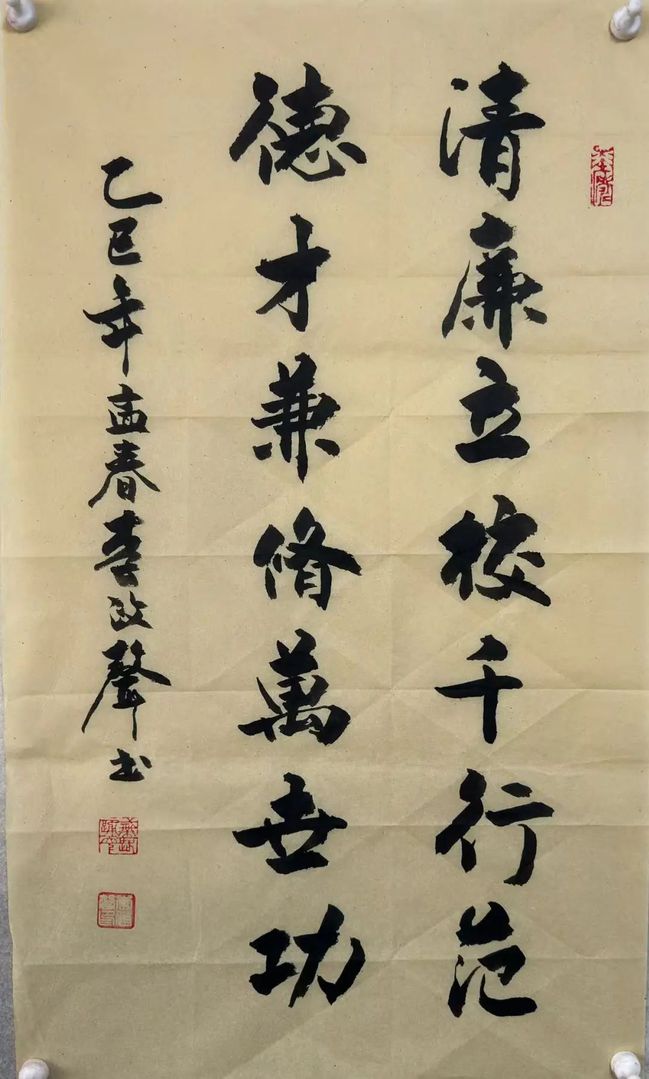 清廉立校千行范
德才兼脩萬世功
乙巳年孟春李政聲书